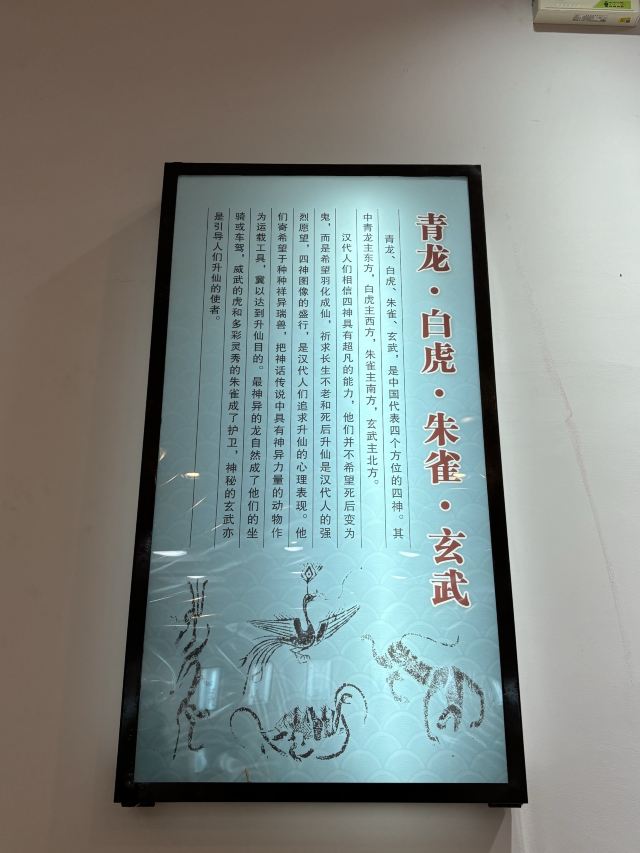 青龙·白虎·朱雀·玄武
青龙、白虎、朱雀、玄武，是中国代表四个方位的四神。其
中青龙主东方，白虎主西方，朱雀主南方，玄武主北方。
汉代人们相信四神具有超凡的能力，他们并不希望死后变为
鬼，而是希望羽化成仙，祈求长生不老和死后升仙是汉代人的强
烈愿望，四神图像的盛行，是汉代人们追求升仙的心理表现。他
们寄希望于种种祥异瑞兽，把神话传说中具有神异力量的动物作
为运载工具，冀以达到升仙目的。最神异的龙自然成了他们的坐
骑或车驾，威武的虎和多彩灵秀的朱雀成了护卫，神秘的玄武亦
是引导人们升仙的使者。